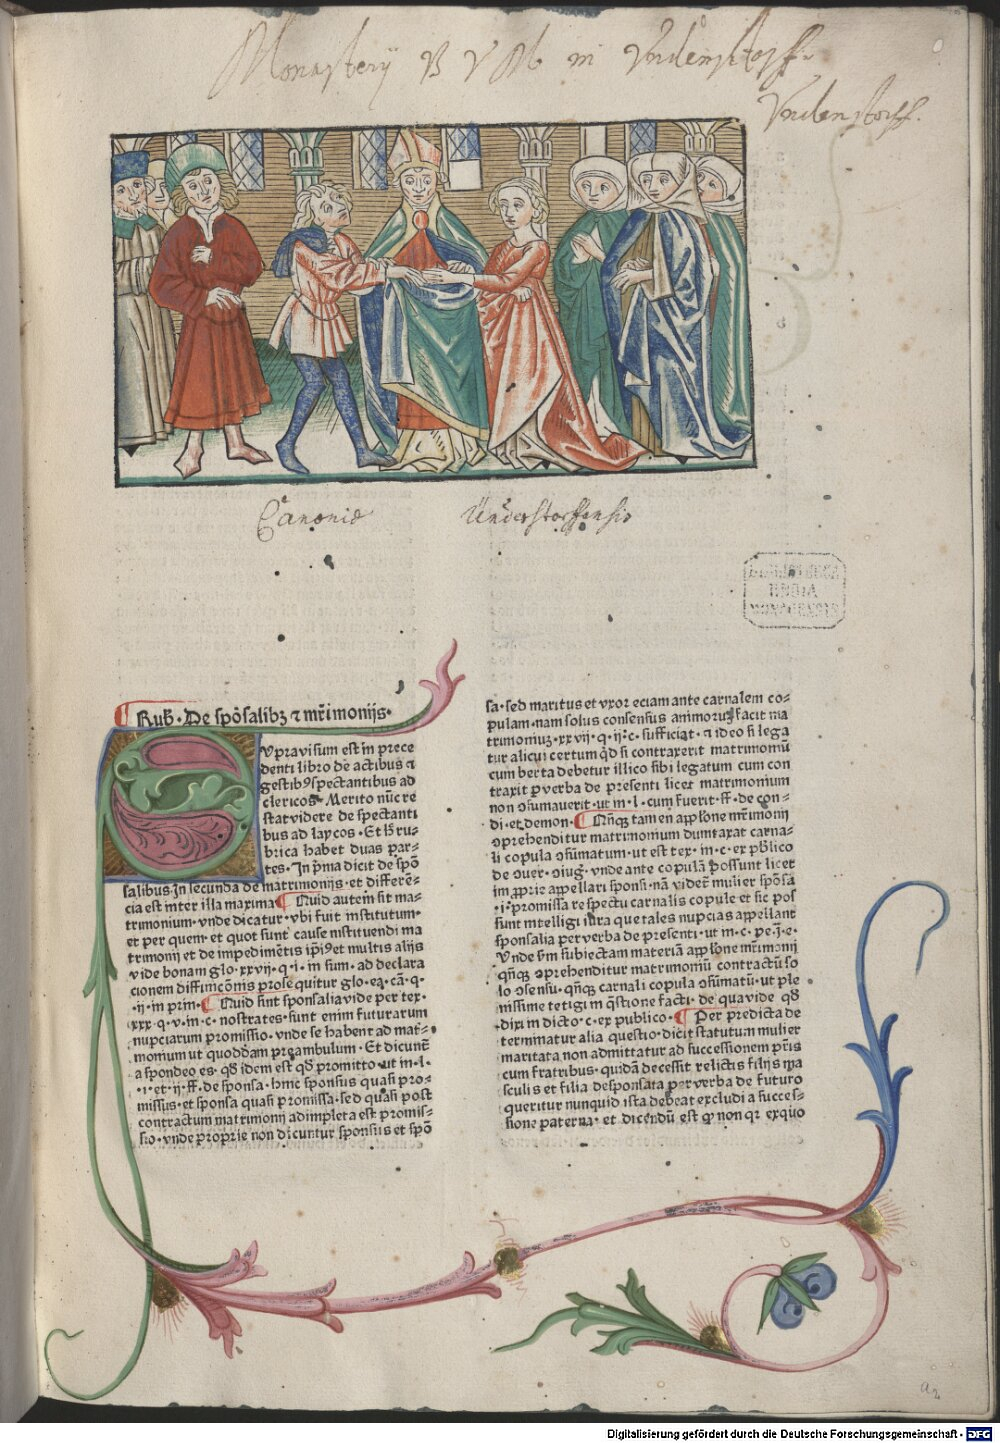 Monasterij B V M in Vndenstorff.
Vndenstorff.
Canonie Vnderstorffensis
Rub. De spōsalibꝫ ⁊ mr̄imonijs.
SVpra visum est in prece
denti libro de actibus ⁊
gestibꝰ spectantibus ad
clericos. Merito nūc re
stat videre de spectanti
bus ad laycos. Et h̄ ru-
brica habet duas par-
tes. In p̄ma dicit de spō
salibus. In secunda de matrimonijs. et differē-
cia est inter illa maxima Quid autem sit ma-
trimonium. vnde dicatur. vbi fuit institutum.
et per quem. et quot sunt cause instituendi ma
trimonij et de impedimētis ip̄iꝰ et multis alijs
vide bonam glo. xxvij. q. i. in sum. ad declara
cionem diffinicōnis prose quitur glo. ea. cā. q.
.ij. in prin. Quid sint sponsalia vide per tex.
xxx. q. v. in c. nostrates. sunt enim futurarum
nupciarum promissio. vnde se habent ad mat-
monium ut quoddam preambulum. Et dicunt̄
a spondeo es. qd̄ idem est qd̄ promitto. ut in. l.
.i. et .ij. ff. de sponsa. hinc sponsus quasi pro-
missus. et sponsa quasi promissa. sed quasi post
contractum matrimonij adimpleta est promis-
sio. vnde proprie non dicuntur sponsus et spō
sa. sed maritus et vxor eciam ante carnalem co-
pulam. nam solus consensus animorum facit ma
trimoniuꝫ. xxvij. q. ij. c. sufficiat. ⁊ ideo si lega
tur alicui certum qd̄ si contraxerit matrimoniū
cum berta debetur illico sibi legatum cum con
traxit per verba de presenti licet matrimonium
non ꝯsumauerit. ut in. l. cum fuerit. ff. de con-
di. et demon. Qn̄qꝫ tamen app̄lōne mr̄imonij
ꝯprehenditur matrimonium dumtaxat carna-
li copula ꝯsūmatum. ut est tex. in. c. ex pb̄lico
de ꝯuer. ꝯiug. vnde ante copulā possunt licet
im ꝓprie appellari sponsi. nā videt̄ mulier spōsa
.i. promissa respectu carnalis copule et sic pos
sunt intelligi iura que tales nupcias appellant
sponsalia per verba de presenti. ut in. c. pe. j. e.
Vnde s̄m subiectam materiā app̄lōne mr̄imonij
qn̄qꝫ ꝯprehenditur matrimoniū contractū so
lo ꝯsensu. qn̄qꝫ carnali copula ꝯsumatū. ut ple
nissime tetigi in q̄stione facti. de qua vide qd̄
dixi in dicto. c. ex publico. Per predicta de
terminatur alia questio. dicit statutum mulier
maritata non admittatur ad successionem pr̄is
cum fratribus. quidā decessit relictis filijs ma
sculis et filia desponsata per verba de futuro
queritur nunquid ista debeat excludi a succes-
sione paterna. et dicendū est ꝙ non qr̄ exquo
a2
Digitalisierung gefördert durch die Deutsche Forschungsgemeinschaft - DFG